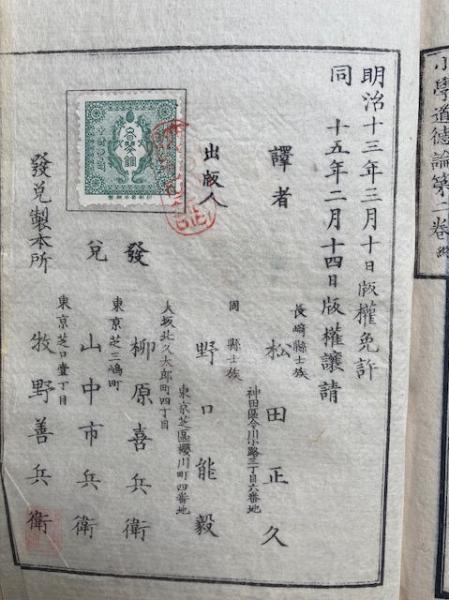 明治十三年三月十日版權免許
同　十五年二月十四日版權讓請
譯者　長崎縣士族　松田正久
神田區今川小路三丁目六番地
出版人　同縣士族　野口能毅
東京芝區櫻川町四番地
發兌
大坂北久太郎町四丁目　柳原喜兵衛
東京芝三嶋町　山中市兵衛
發兌製本所　東京芝口壹丁目　牧野善兵衛
小學道德論第二卷